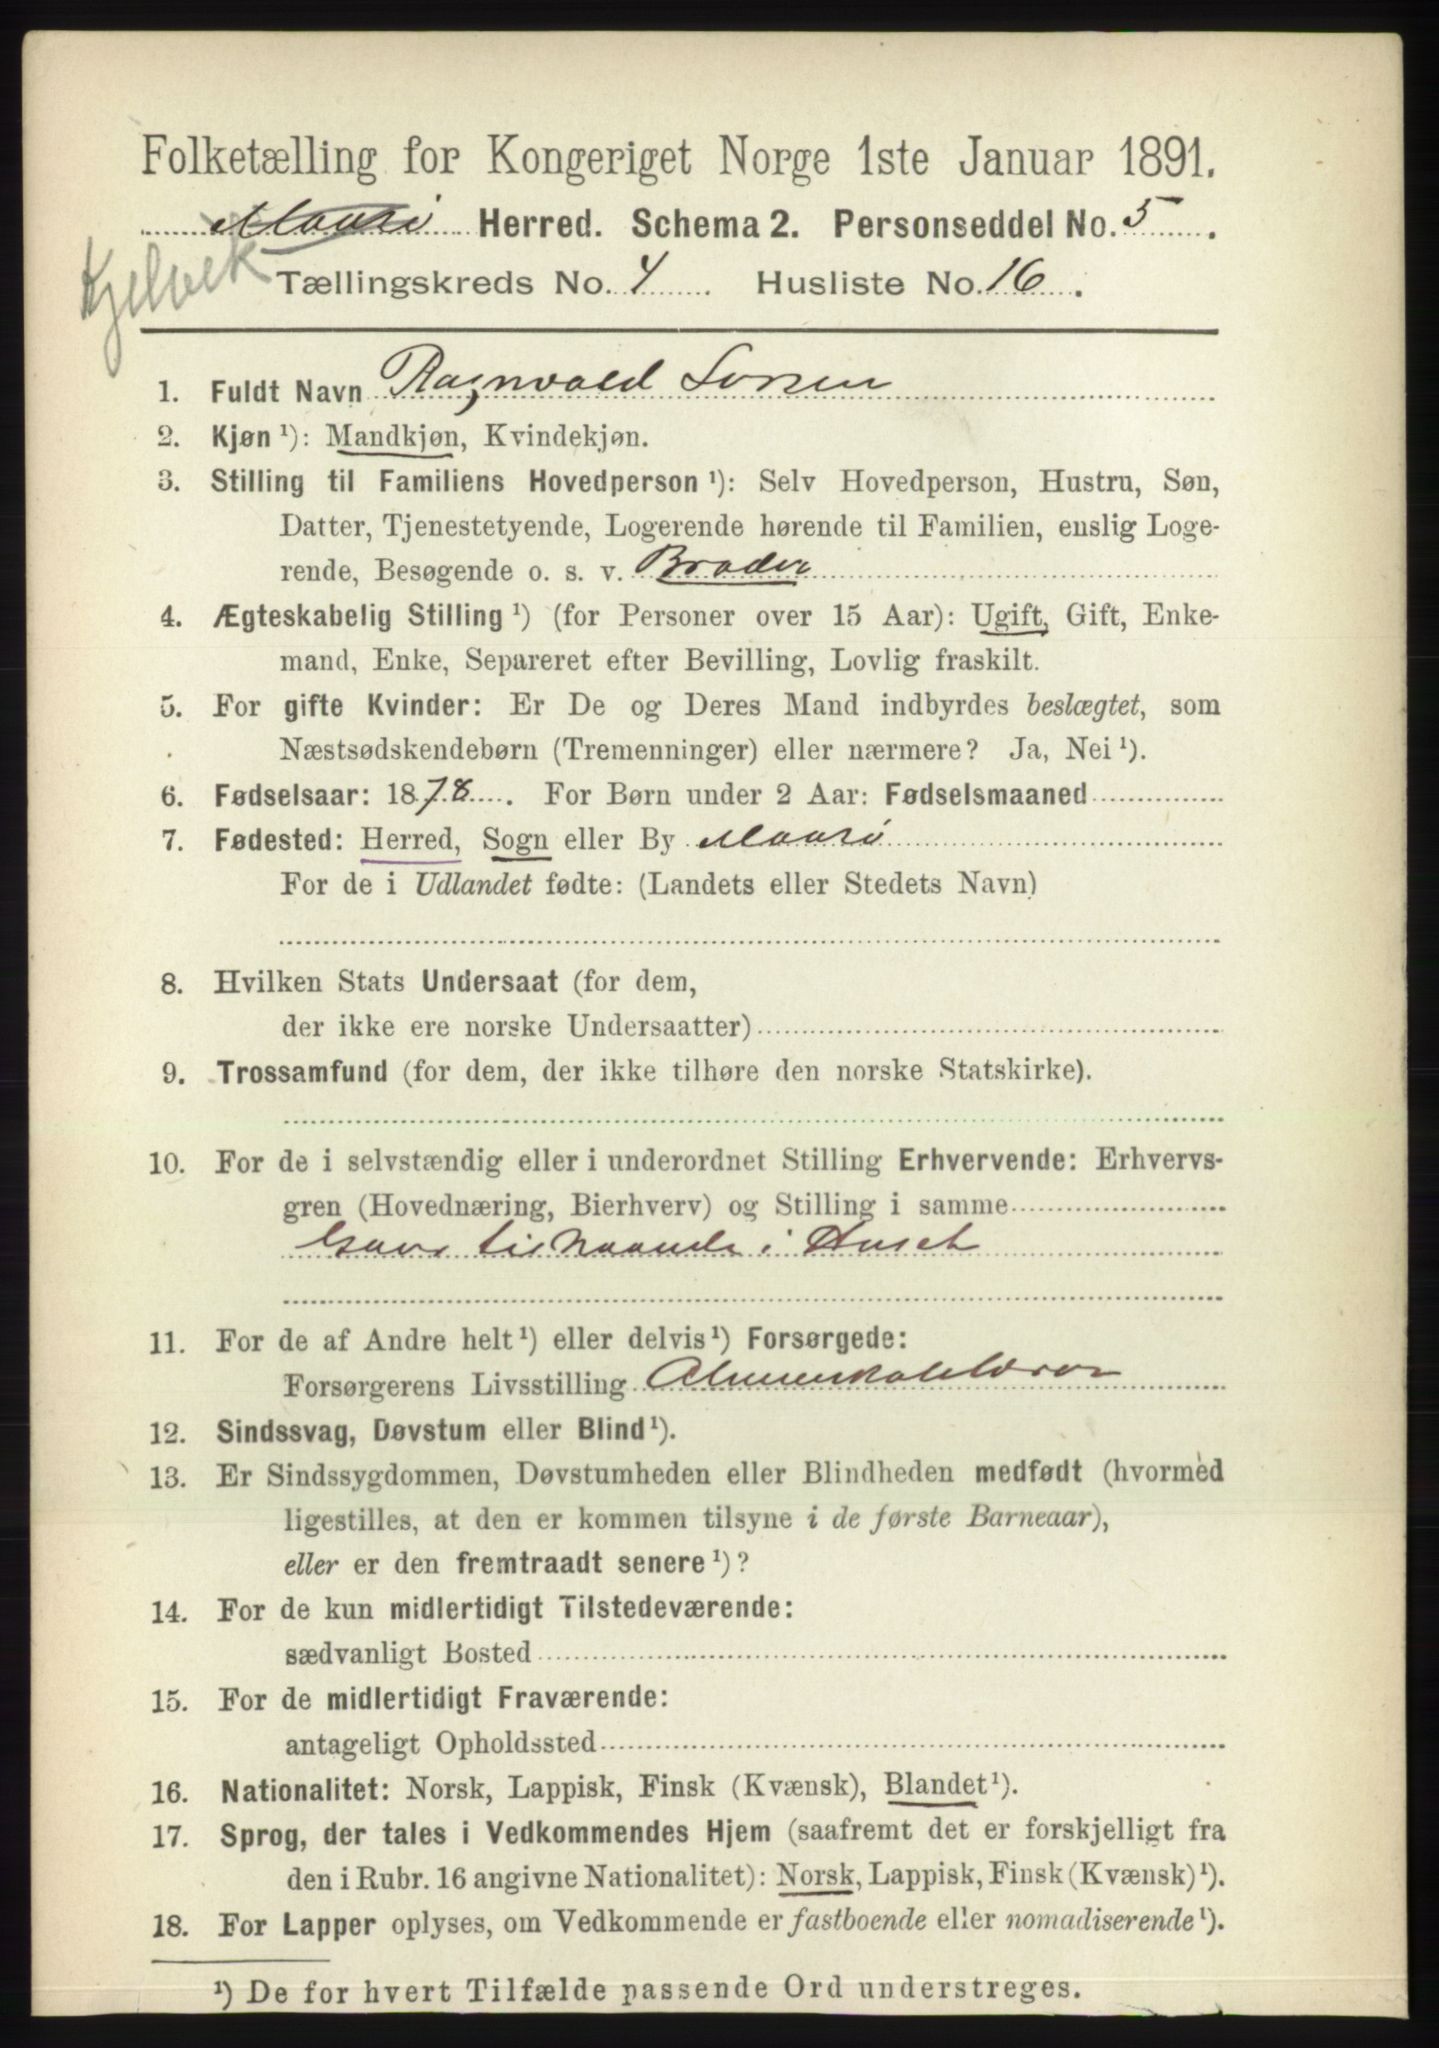 Folketælling for Kongeriget Norge 1ste Januar 1891.
Maasø Herred. Schema 2. Personseddel No. 5.
Kjelvik
Tællingskreds No. 4 Husliste No. 16.
1. Fuldt Navn Ragnvald
2. Kjøn ¹): Mandkjøn, Kvindekjøn.
3. Stilling til Familiens Hovedperson ¹): Selv Hovedperson, Hustru, Søn,
Datter, Tjenestetyende, Logerende hørende til Familien, enslig Loge-
rende, Besøgende o. s. v. Broder
4. Ægteskabelig Stilling ¹) (for Personer over 15 Aar): Ugift, Gift, Enke-
mand, Enke, Separeret efter Bevilling, Lovlig fraskilt.
5. For gifte Kvinder: Er De og Deres Mand indbyrdes beslægtet, som
Næstsødskendebørn (Tremenninger) eller nærmere? Ja, Nei ¹).
6. Fødselsaar: 1878. For Børn under 2 Aar: Fødselsmaaned
7. Fødested: Herred, Sogn eller By Maasø
For de i Udlandet fødte: (Landets eller Stedets Navn)
8. Hvilken Stats Undersaat (for dem,
der ikke ere norske Undersaatter)
9. Trossamfund (for dem, der ikke tilhøre den norske Statskirke).
10. For de i selvstændig eller i underordnet Stilling Erhvervende: Erhvervs-
gren (Hovednæring, Bierhverv) og Stilling i samme
Gaar tilhaande i Huset
11. For de af Andre helt ¹) eller delvis ¹) Forsørgede:
Forsørgerens Livsstilling
12. Sindssvag, Døvstum eller Blind ¹).
13. Er Sindssygdommen, Døvstumheden eller Blindheden medfødt (hvormed
ligestilles, at den er kommen tilsyne i de første Barneaar),
eller er den fremtraadt senere ¹)?
14. For de kun midlertidigt Tilstedeværende:
sædvanligt Bosted
15. For de midlertidigt Fraværende:
antageligt Opholdssted
16. Nationalitet: Norsk, Lappisk, Finsk (Kvænsk), Blandet ¹).
17. Sprog, der tales i Vedkommendes Hjem (saafremt det er forskjelligt fra
den i Rubr. 16 angivne Nationalitet): Norsk, Lappisk, Finsk (Kvænsk) ¹).
18. For Lapper oplyses, om Vedkommende er fastboende eller nomadiserende ¹).
¹) De for hvert Tilfælde passende Ord understreges.